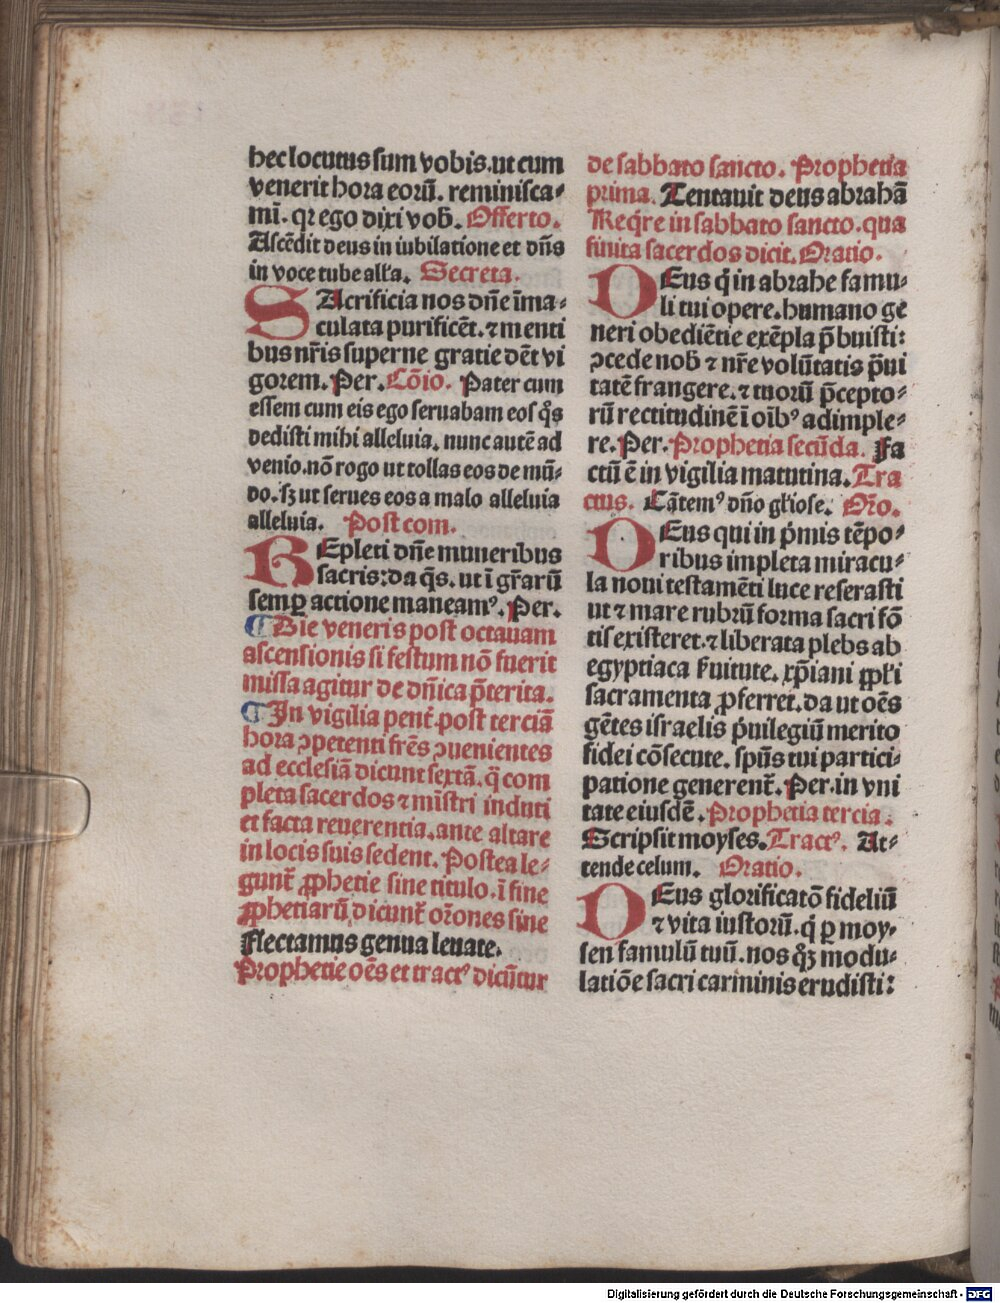 hec locutus sum vobis. ut cum
venerit hora eorū. reminisca⸗
mī. qꝛ ego dixi vob̄. Offerto.
Ascēdit deus in iubilatione et dn̄s
in voce tube all'a. Secreta.
SAcrificia nos dn̄e īma⸗
culata purificēt. ⁊ menti
bus nr̄is superne gratie dēt vi
gorem. Per. Cōio. Pater cum
essem cum eis ego seruabam eos q̄s
dedisti mihi alleluia. nunc autē ad
venio. nō rogo ut tollas eos de mū⸗
do. sꝫ ut serues eos a malo alleluia
alleluia. Post com.
REpleti dn̄e muneribus
sacris: da q̄s. ut ī gr̄arū
semꝑ actione maneamꝰ. Per.
¶ Die veneris post octauam
ascensionis si festum nō fuerit
missa agitur de dn̄ica p̄terita.
¶ In vigilia pent̄. post terciā
hora ꝯpetenti fr̄es ꝯuenientes
ad ecclesiā dicunt sextā. q̄ com
pleta sacerdos ⁊ mīstri induti
et facta reuerentia. ante altare
in locis suis sedent. Postea le⸗
gunt̄ ꝓphetie sine titulo. ī fine
ꝓphetiarū dicunt̄ or̄ones sine
Flectamus genua leuate.
Prophetie oēs et tractꝰ dicūtur
de sabbato sancto. Prophetia
prima. Tentauit deus abrahā
Reqͥre in sabbato sancto. qua
finita sacerdos dicit. Oratio.
DEus qͥ in abrahe famu⸗
li tui opere. humano ge
neri obediētie exēpla p̄buisti:
ꝯcede nob̄ ⁊ nr̄e volūtatis p̄ui
tatē frangere. ⁊ tuorū p̄cepto⸗
rū rectitudinē ī oībꝰ adimple⸗
re. Per. Prophetia secūda. Fa
ctū ē in vigilia matutina. Tra
ctus. Cātemꝰ dn̄o gl'iose. Or̄o.
DEus qui in pͥmis tēpo⸗
ribus impleta miracu⸗
la noui testamēti luce reserasti
ut ⁊ mare rubrū forma sacri fō
tis existeret. ⁊ liberata plebs ab
egyptiaca ẜuitute. xp̄iani ꝓpl'i
sacramenta ꝓferret. da ut oēs
gētes israelis pͥuilegiū merito
fidei cōsecute. spūs tui partici⸗
patione generent̄. Per. in vni
tate eiusdē. Prophetia tercia.
Scripsit moyses. Tractꝰ. At⸗
tende celum. Oratio.
DEus glorificatō fideliū
⁊ vita iustorū. qͥ ꝑ moy⸗
sen famulū tuū. nos qͦꝫ modu⸗
latiōe sacri carminis erudisti:
Digitalisierung gefördert durch die Deutsche Forschungsgemeinschaft - DFG